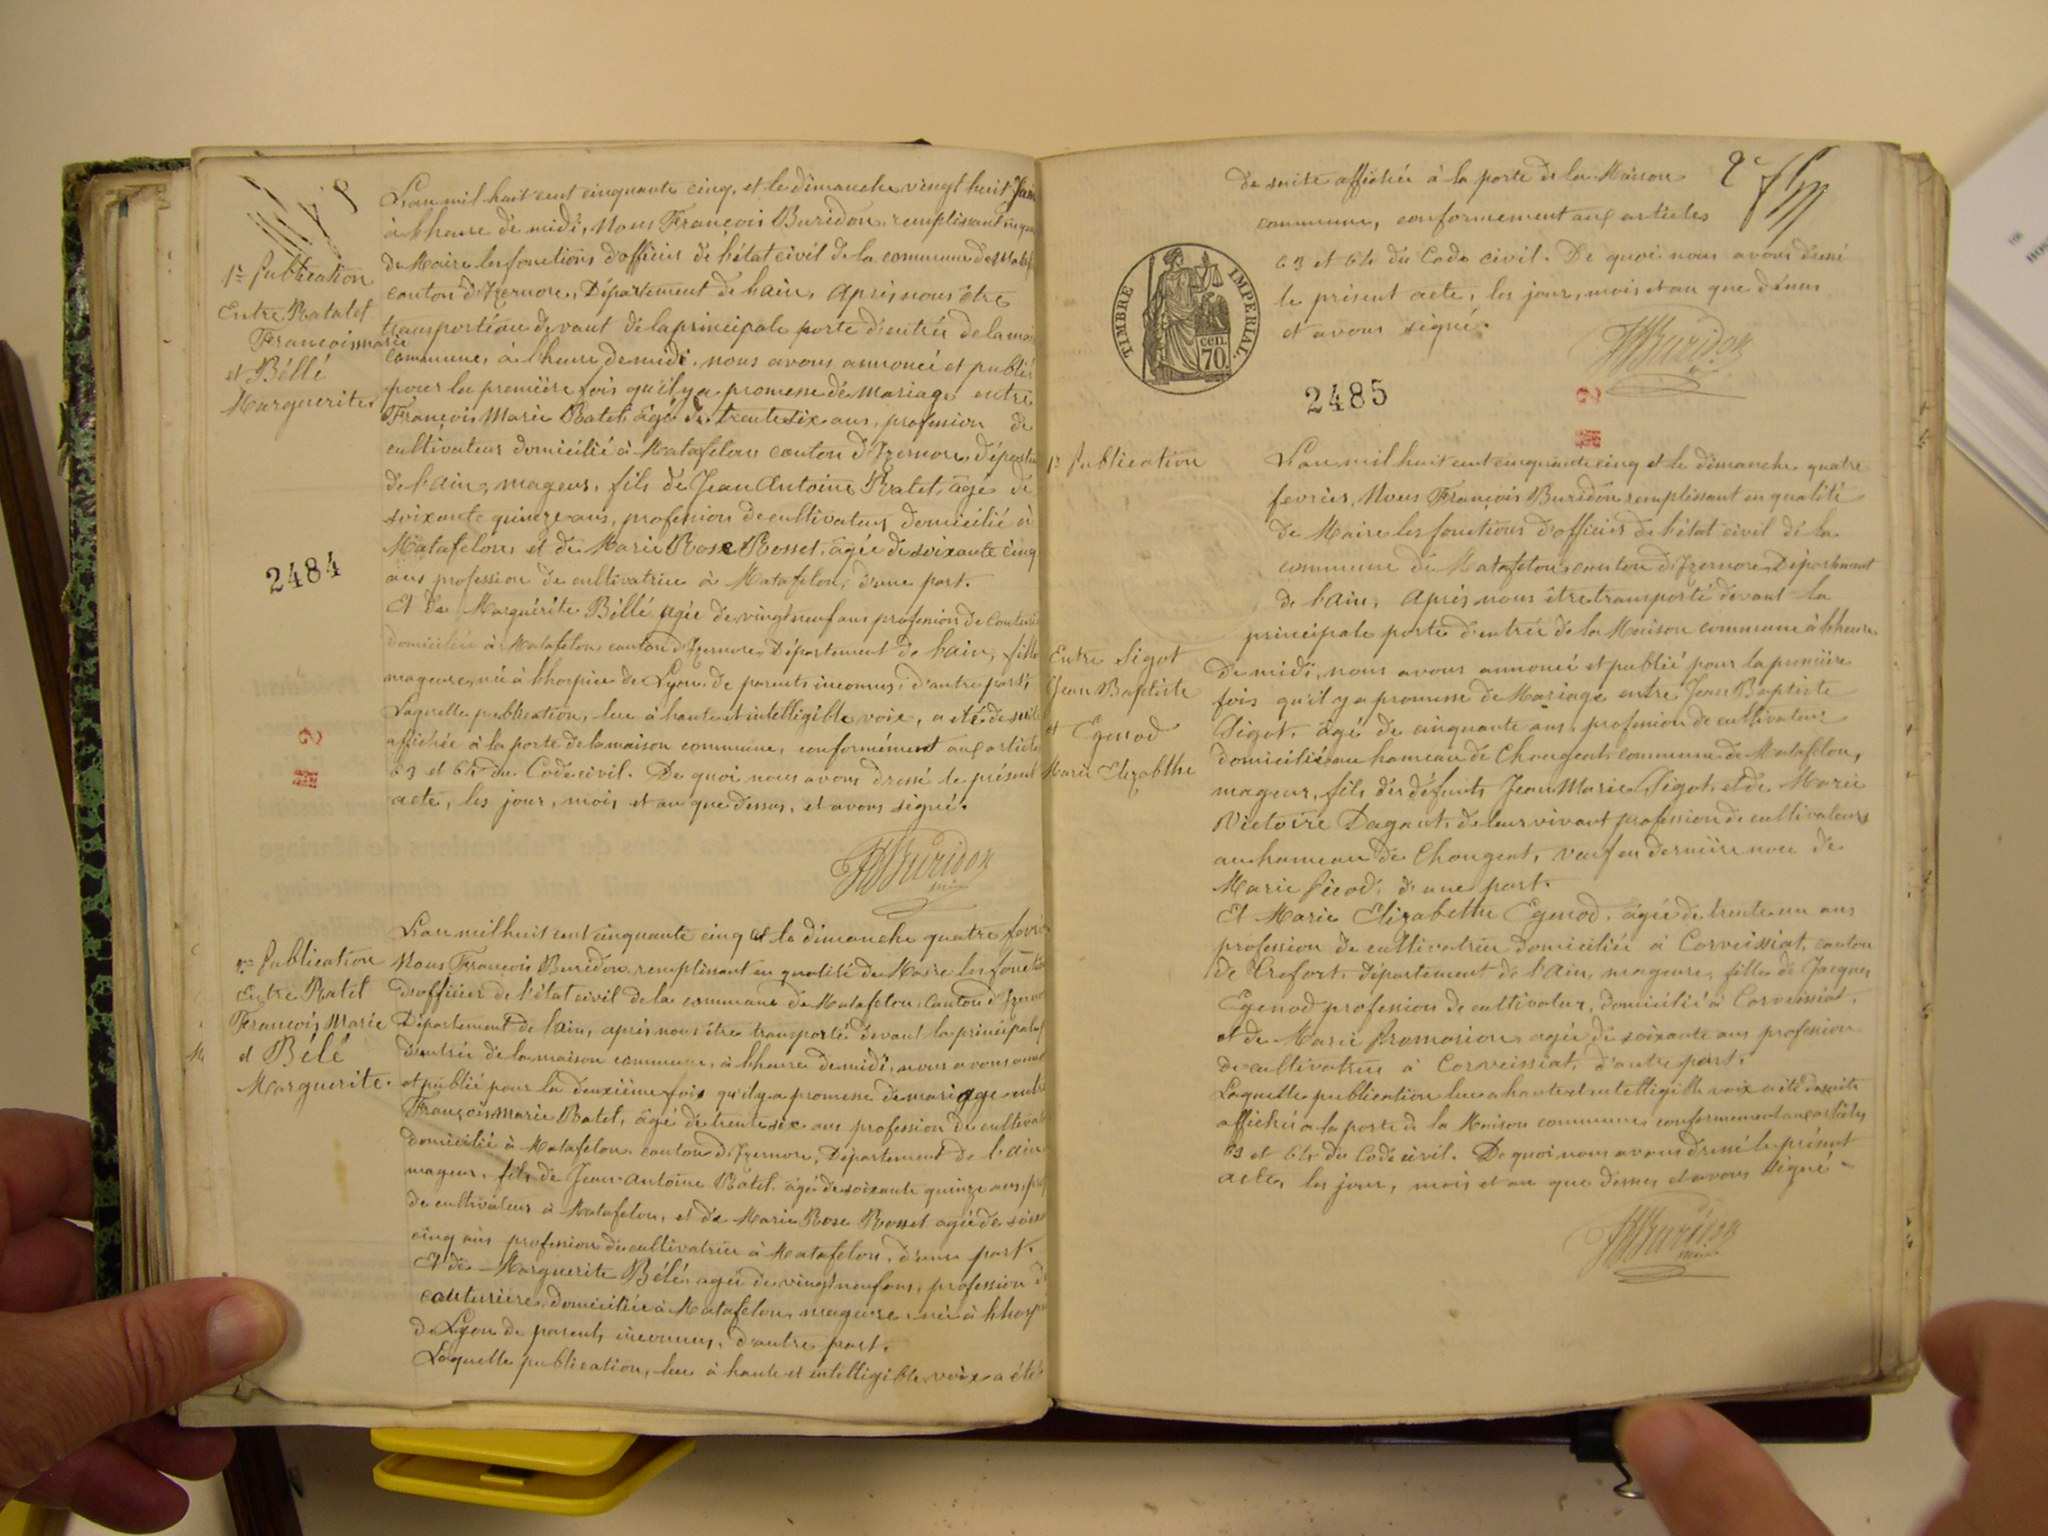 1re Publication
Entre Ratatet
François marie
et Béllé
Marguerite
2484
L'an mil huit cent cinquante cinq, et le dimanche vingt huit Jan
à l'heure de midi, Nous François Buridon, remplissant en qua
de Maire les fonctions d'officier de l'état civil de la commune de Mataf
canton d'Izernore, Département de l'ain, après nous être
transporté au devant de la principale porte d'entrée de la mai
commune, à l'heure de midi, nous avons annoncé et publié
pour la première fois qu'il y a promesse de mariage entre
François Marie Ratet, âgé de trente six ans, profession de
cultivateur domicilié à Matafelon canton d'Izernore, départem
de l'ain, mageur, fils de Jean Antoine Ratet, âgé de
soixante quinze ans, profession de cultivateur domicilié à
Matafelon, et de Marie Rose Rosset, âgée de soixante cinq
ans profession de cultivatrice à Matafelon, d'une part.
Et de Marguérite Béllé agée de vingt neuf ans profession de Couturi
domiciliée à Matafelon canton d'Izernore, Département de l'ain, fille
mageure, née à l'hospice de Lyon, de parents inconnus, d'autre part.
Laquelle publication, lue à haute et intelligible voix, a été de suite
affichée à la porte de la maison commune, conformément aux article
63 et 64 du Code civil. De quoi nous avons dressé le présent
acte, les jour, mois et an que dessus, et avons signé.
Buridon
2e Publication
Entre Ratet
François Marie
et Bélé
Marguerite.
L'an mil huit cent cinquante cinq et le dimanche quatre fevri
Nous François Buridon remplissant en qualité de Maire les foncti
d'officier de l'état civil de la commune de Matafelon, Canton d'Izernor
Département de l'ain, après nous être transporté devant la principale p
d'entrée de la maison commune, à l'heure de midi, nous avons annon
et publié pour la deuxième fois qu'il y a promesse de mariage entre
François marie Ratet, âgé de trente six ans profession de cultivat
domicilié à Matafelon, canton d'Izernore, Département de l'ain
mageur, fils de Jean Antoine Ratet âgé de soixante quinze ans, prof
de cultivateur à Matafelon, et de Marie Rose Rosset agée de soixa
cinq ans profession de cultivatrice à Matafelon, d'une part.
Et de Marguerite Bélé, agée de vingt neuf ans, profession d
couturière, domiciliée à Matafelon, mageure, née à l'hosp
de Lyon de parents inconnus, d'autre part.
Laquelle publication, lue à haute et intelligible voix a été
de suite affichée à la porte de la Maison
commune, conformement aux articles
63 et 64 du Code civil. De quoi nous avons dressé
le présent acte, les jour, mois et an que dessus
et avons signé.
2e
TIMBRE IMPERIAL
70 CEN.
Buridon
2485
1re Publication
Entre Sigot
Jean Baptiste
et Egenod
Marie Elizabthe
L'an mil huit cent cinquante cinq et le dimanche quatre
fevrier, Nous François Buridon remplissant en qualité
de Maire les fonctions d'officier de l'état civil de la
commune de Matafelon, canton d'Izernore, Département
de l'ain, après nous être transporté devant la
principale porte d'entrée de la Maison commune à l'heure
de midi, nous avons annoncé et publié pour la première
fois qu'il y a promesse de Mariage entre Jean Baptiste
Sigot, âgé de cinquante ans, profession de cultivateur
domicilié au hameau de Chougeat, commune de Matafelon,
mageur, fils des défunts Jean Marie Sigot, et de Marie
Victoire Dagout, de leur vivant profession de cultivateurs
au hameau de Chougeat, veuf en dernière noce de
Marie Picod, d'une part.
Et Marie Elizabethe Egenod, âgée de trente un ans
profession de cultivatrice domiciliée à Corveissiat, canton
de Trefort, département de l'Ain, mageure, fille de Jacques
Egenod profession de cultivateur, domicilié à Corveissiat,
et de Marie Promonion agée de soixante ans profession
de cultivatrice à Corveissiat, d'autre part.
Laquelle publication lue a haute et intelligible voix a été de suite
affichée a la porte de la Maison commune, conformement aux articles
63 et 64 du Code civil. De quoi nous avons dressé le présent
acte, les jour, mois et an que dessus et avons signé.
Buridon